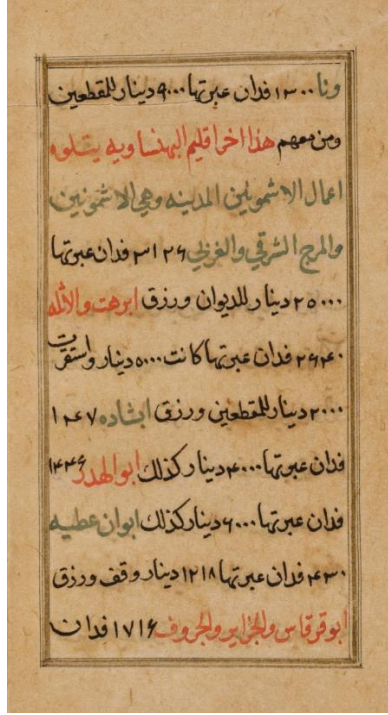 ونا ١٣٠٠ فدان عبرتها ٩٠٠٠ دينار للمقطعين
ومن معهم هذا اخر اقليم البهنساويه يتلوه
اعمال الاشمونين المدينه وهي الاشمونين
والمرج الشرقي والغربي فدان عبرتها
٢٥٠٠٠ دينار للديوان ورزق ابرهت والاثله
فدان عبرتها كانت ٥٠٠٠ دينار واستقرت
٢٠٠٠ دينار للمقطعين ورزق ابشاده ١٢٤٧
فدان عبرتها ٤٠٠٠ دينار كذلك ابو الهدر
فدان عبرتها ٦٠٠٠ دينار كذلك ابوان عطيه
فدان عبرتها ١٢١٨ دينار وقف ورزق
ابو قرقاس والجزاير والجروف ١٧١٦ فدان